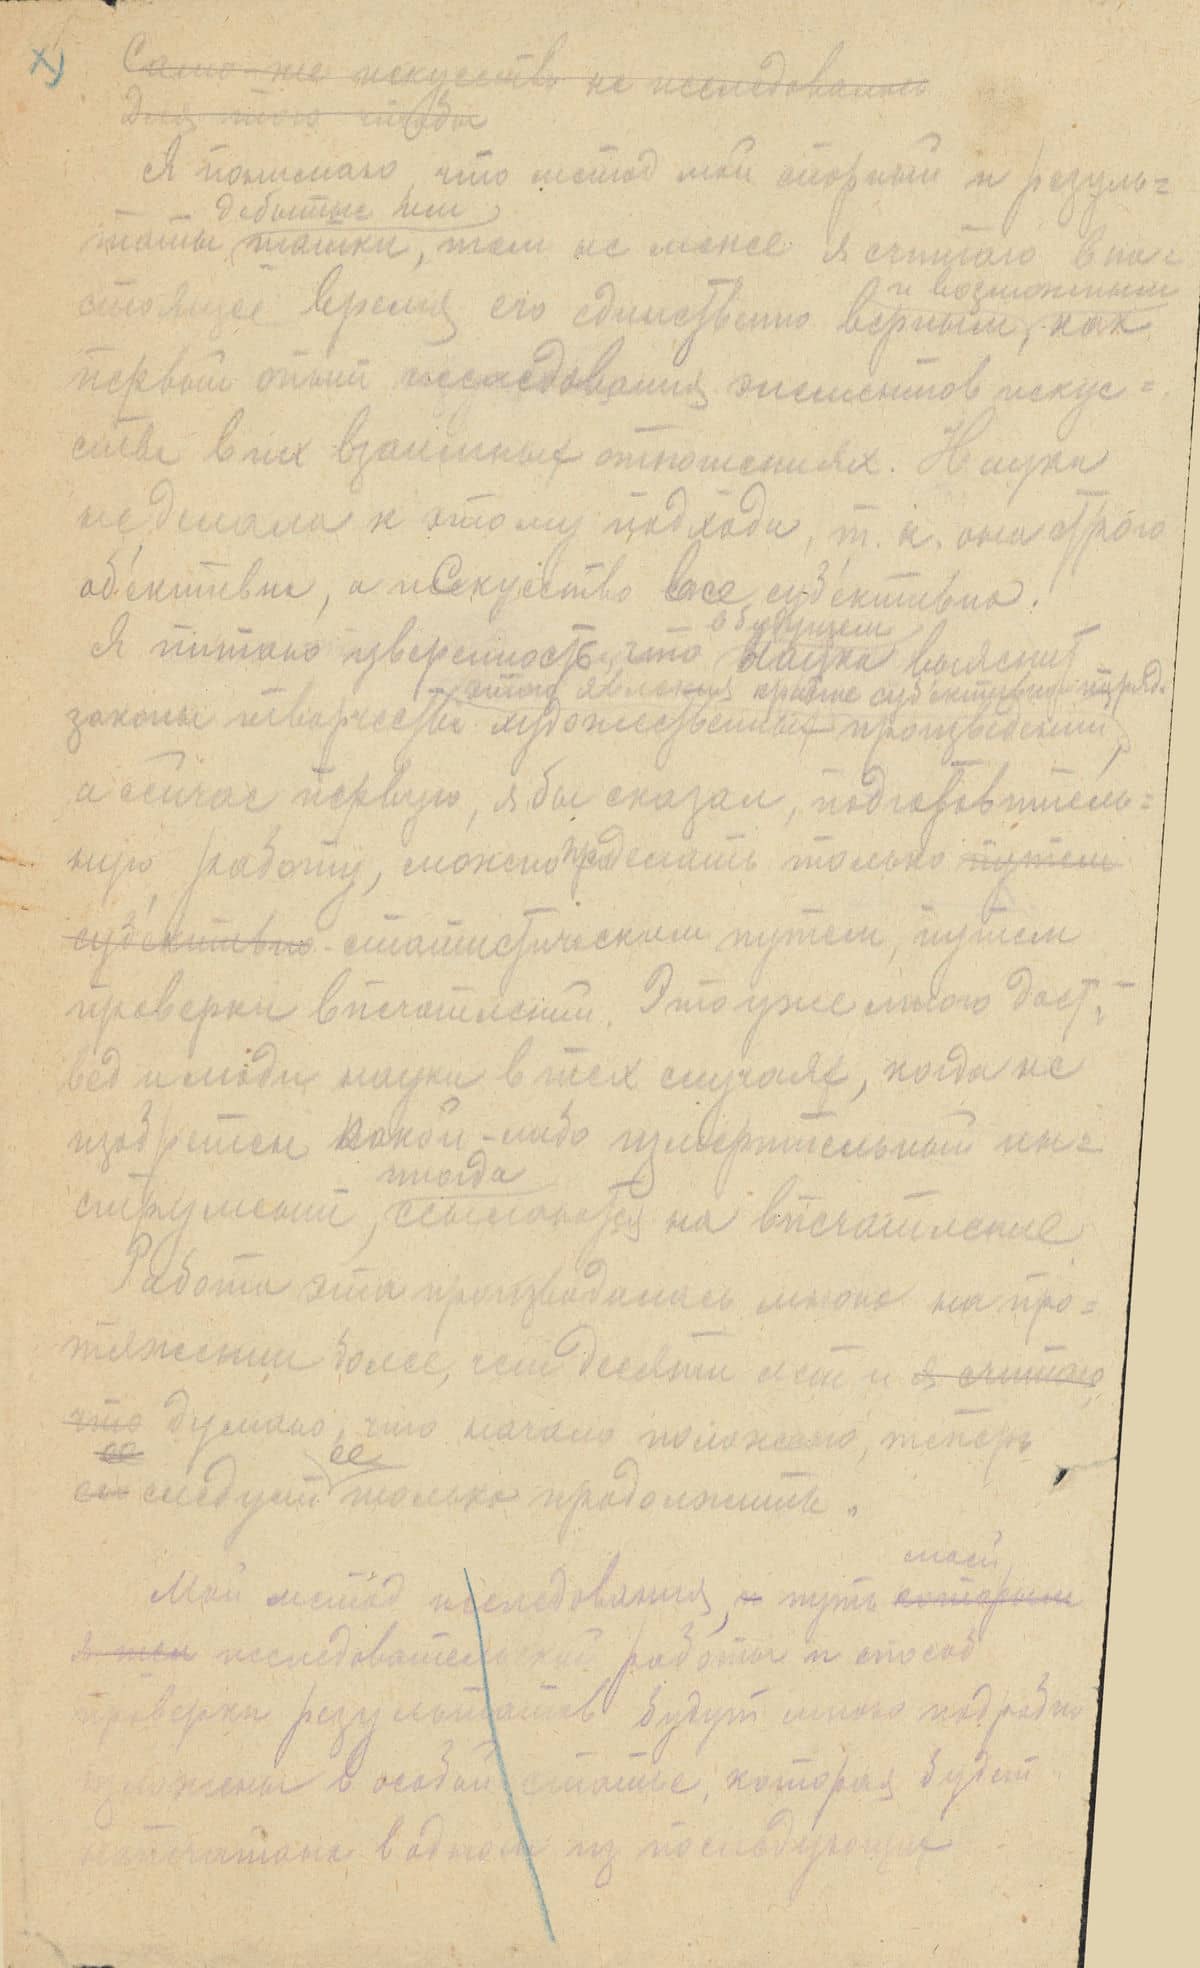 х)
Само-же искусство не исследовалось
Для того чтобы
Я понимаю, что метод мой спорный и резуль=
добытые им
таты шатки, тем не менее я считаю в на=
и возможным
стоящее время его единственно верным, как
первый опыт исследования элементов искус=
ства в их взаимных отношениях. Наука
не делала к этому подхода, т.к. она строго
об'ективна, а искусство все суб'ективно.
в будущем
Я питаю уверенность, что наука выяснит
этого явления крайне суб'ективного поряд.
законы творчества художественных произведений,
а сейчас первую, я бы сказал, подготовитель=
ную работу, можно проделать только путем
суб'ективно-статистическим путем, путем
проверки впечатлений. Это уже много даст,
вед и люди науки в тех случаях, когда не
изобретен какой-либо измерительный ин=
иногда
струмент, ссылаются на впечатление
Работа эта производилась мною на про=
тяжении более, чем десяти лет и я считаю,
что думаю, что начало положено, теперь
ее
ее следует только продолжить.
моей
Мой метод исследования, и путь которым
я шел исследовательской работы и способ
проверки результатов будут мною подробно
изложены в особой статье, которая будет
напечатана в одном из последующих